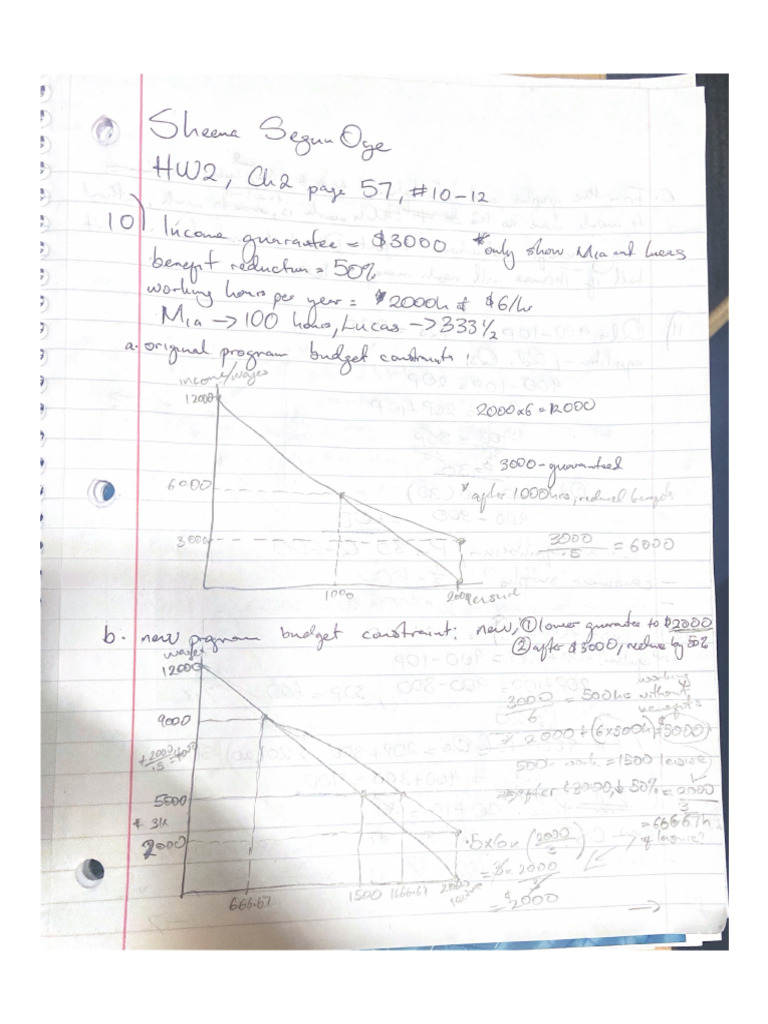 Sheena Segun Oge
HW2, Ch2 page 57, #10-12
10) Income guarantee = $3000 *only show Mia and Lucas
benefit reduction = 50%
working hours per year = 2000h & $6/hr
Mia → 100 hours, Lucas → 333 1/2
a. original program budget constraints:
income/wages
12000
2000x6 = 12000
3000 - guaranteed
6000
*after 1000hrs, reduced benefits
3000
3000/.5 = 6000
1000
2000 leisure
b. new program budget constraint: new, ① lower guarantee to $2000
② after $3000, reduce by 50%
wages
12000
3000/6 = 500hrs working without benefits
9000
2000 + (6x500h) = 5000
500 = 1500 leisure
5000
after 3000, ↓ 50% = 2000/3
+ 3k
= 666.67h of leisure?
2000
.5x6x (2000/3)
= 3 x 2000/3
= $2000
666.67
1500
1666.67
2000 leisure
→